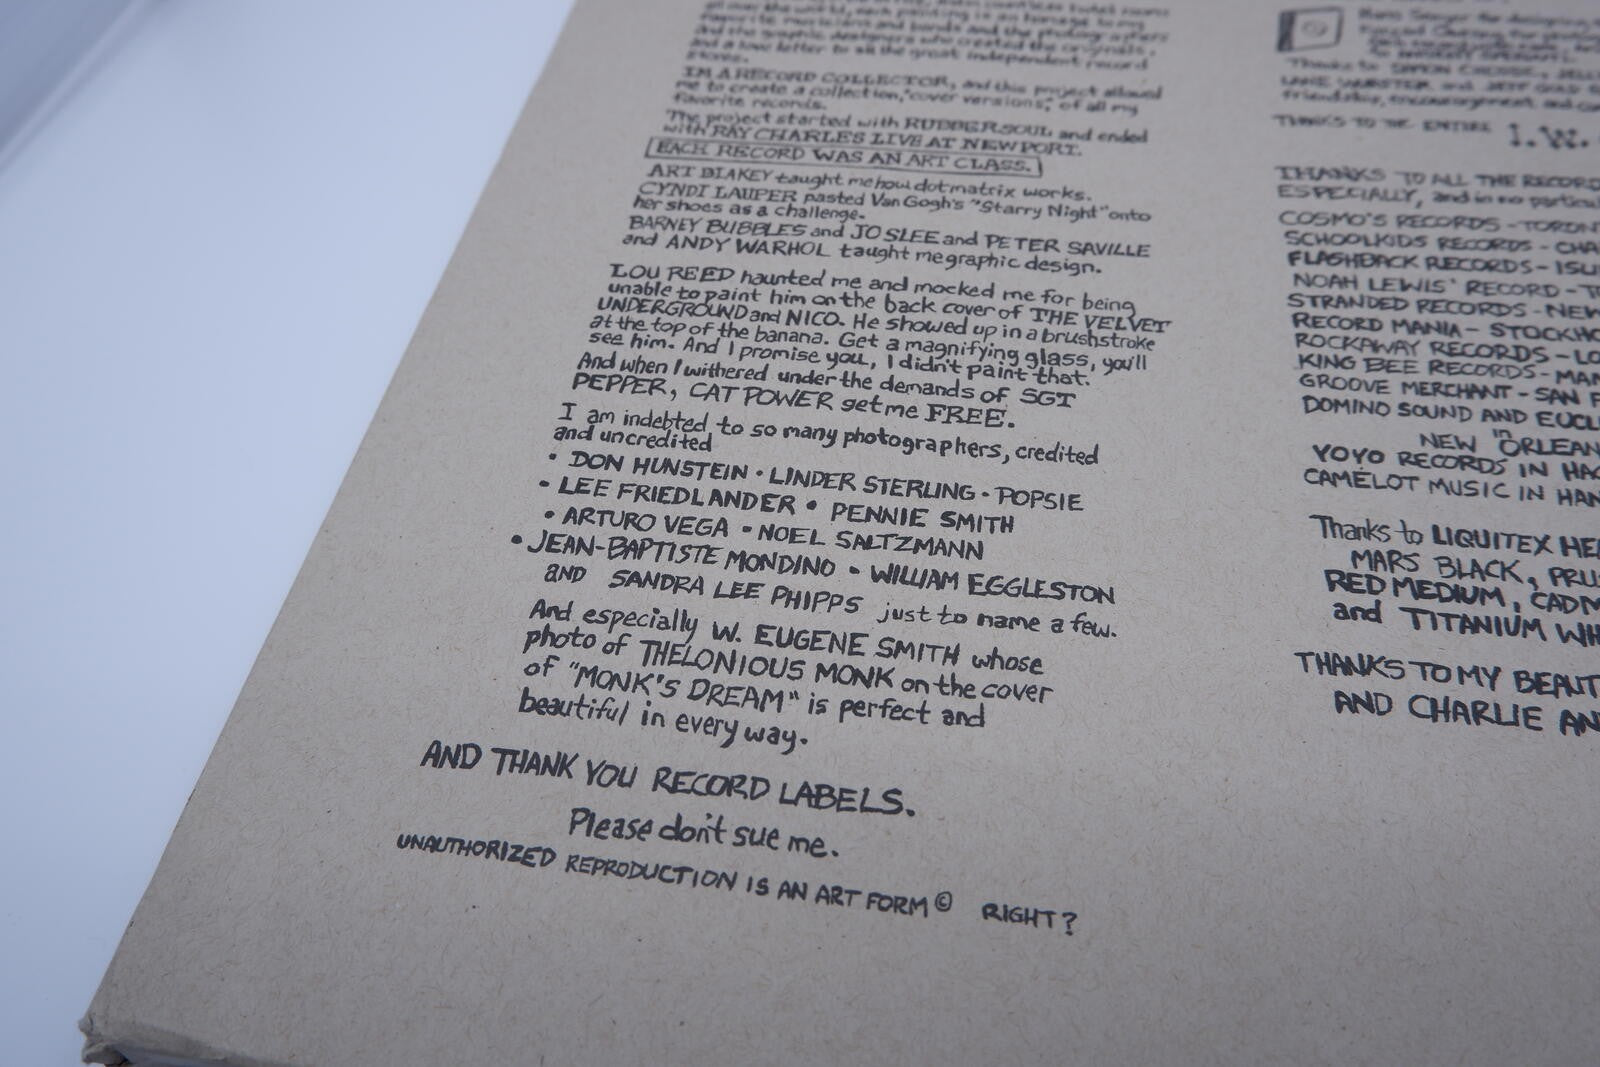 all over the world, each painting is an homage to my
favorite musicians and bands and the photographers
and the graphic designers who created the originals,
and a love letter to all the great independent record
stores.
IM A RECORD COLLECTOR, and this project allowed
me to create a collection, "cover versions", of all my
favorite records.
The project started with RUBBER SOUL and ended
with RAY CHARLES LIVE AT NEWPORT.
EACH RECORD WAS AN ART CLASS.
ART BLAKEY taught me how dot matrix works.
CYNDI LAUPER pasted Van Gogh's "Starry Night" onto
her shoes as a challenge.
BARNEY BUBBLES and JO SLEE and PETER SAVILLE
and ANDY WARHOL taught me graphic design.
LOU REED haunted me and mocked me for being
unable to paint him on the back cover of THE VELVET
UNDERGROUND and NICO. He showed up in a brushstroke
at the top of the banana. Get a magnifying glass, you'll
see him. And I promise you, I didn't paint that.
And when I withered under the demands of SGT
PEPPER, CAT POWER get me FREE.
I am indebted to so many photographers, credited
and uncredited
• DON HUNSTEIN • LINDER STERLING • POPSIE
• LEE FRIEDLANDER • PENNIE SMITH
• ARTURO VEGA • NOEL SALTZMANN
• JEAN-BAPTISTE MONDINO • WILLIAM EGGLESTON
AND SANDRA LEE PHIPPS just to name a few.
And especially W. EUGENE SMITH whose
photo of THELONIOUS MONK on the cover
of "MONK'S DREAM" is perfect and
beautiful in every way.
AND THANK YOU RECORD LABELS.
Please don't sue me.
UNAUTHORIZED REPRODUCTION IS AN ART FORM © RIGHT?
friendship, encouragement and
THANKS TO THE ENTIRE I.W.
THANKS TO ALL THE RECORD
ESPECIALLY, and in no particul
COSMO'S RECORDS - TORONT
SCHOOLKIDS RECORDS - CHA
FLASHBACK RECORDS - ISL
NOAH LEWIS' RECORD - T
STRANDED RECORDS - NEW
RECORD MANIA - STOCKHO
ROCKAWAY RECORDS - LO
KING BEE RECORDS - MAN
GROOVE MERCHANT - SAN F
DOMINO SOUND AND EUCL
in
NEW ORLEAN
YOYO RECORDS IN HAC
CAMELOT MUSIC IN HAN
Thanks to LIQUITEX HE
MARS BLACK, PRU
RED MEDIUM, CADM
and TITANIUM WH
THANKS TO MY BEAUT
AND CHARLIE AN